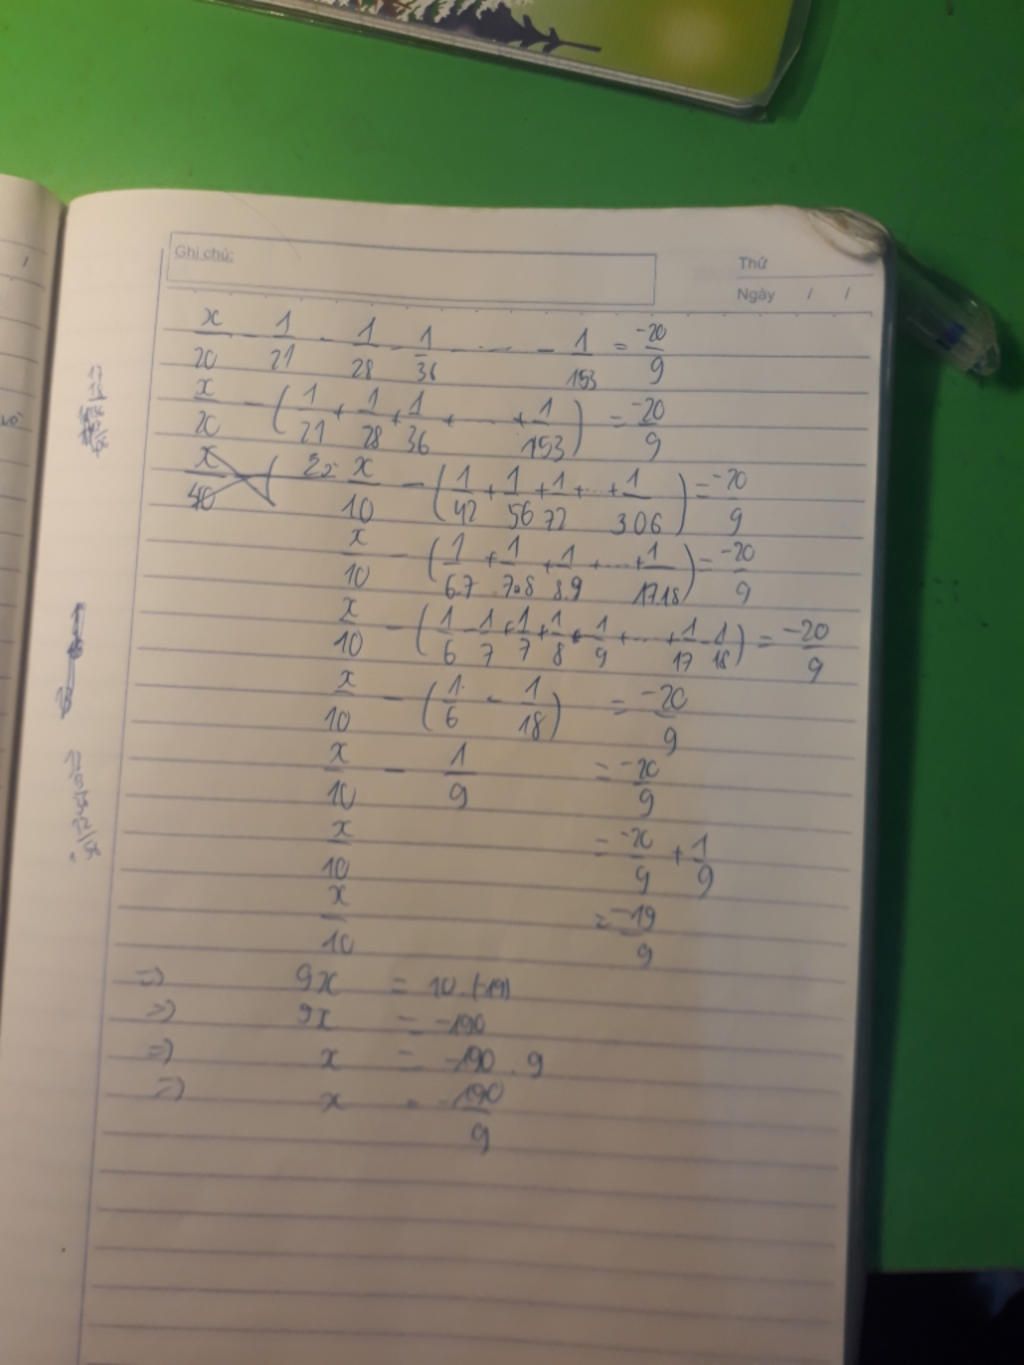 Ghi chú:
Thứ
Ngày / /
x/20 - 1/21 - 1/28 - 1/36 - ... - 1/153 = -20/9
x/20 - (1/21 + 1/28 + 1/36 + ... + 1/153) = -20/9
x/10 - (1/42 + 1/56 + 1/72 + ... + 1/306) = -20/9
x/10 - (1/6.7 + 1/7.8 + 1/8.9 + ... + 1/17.18) = -20/9
x/10 - (1/6 - 1/7 + 1/7 + 1/8 + 1/9 + ... + 1/17 - 1/18) = -20/9
x/10 - (1/6 - 1/18) = -20/9
x/10 - 1/9 = -20/9
x/10 = -20/9 + 1/9
x/10 = -19/9
=> 9x = 10.(-19)
=> 9x = -190
=> x = -190 . 9
=> x = -190/9